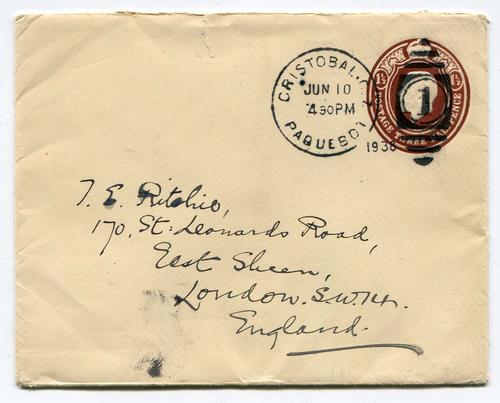 CRISTOBAL, C.Z.
JUN 10
4 30 PM
PAQUEBOT
1936
1
1½ 1½
POSTAGE THREE HALF PENCE
T. E. Ritchie,
170, St. Leonards Road,
East Sheen,
London. S.W.14.
England.